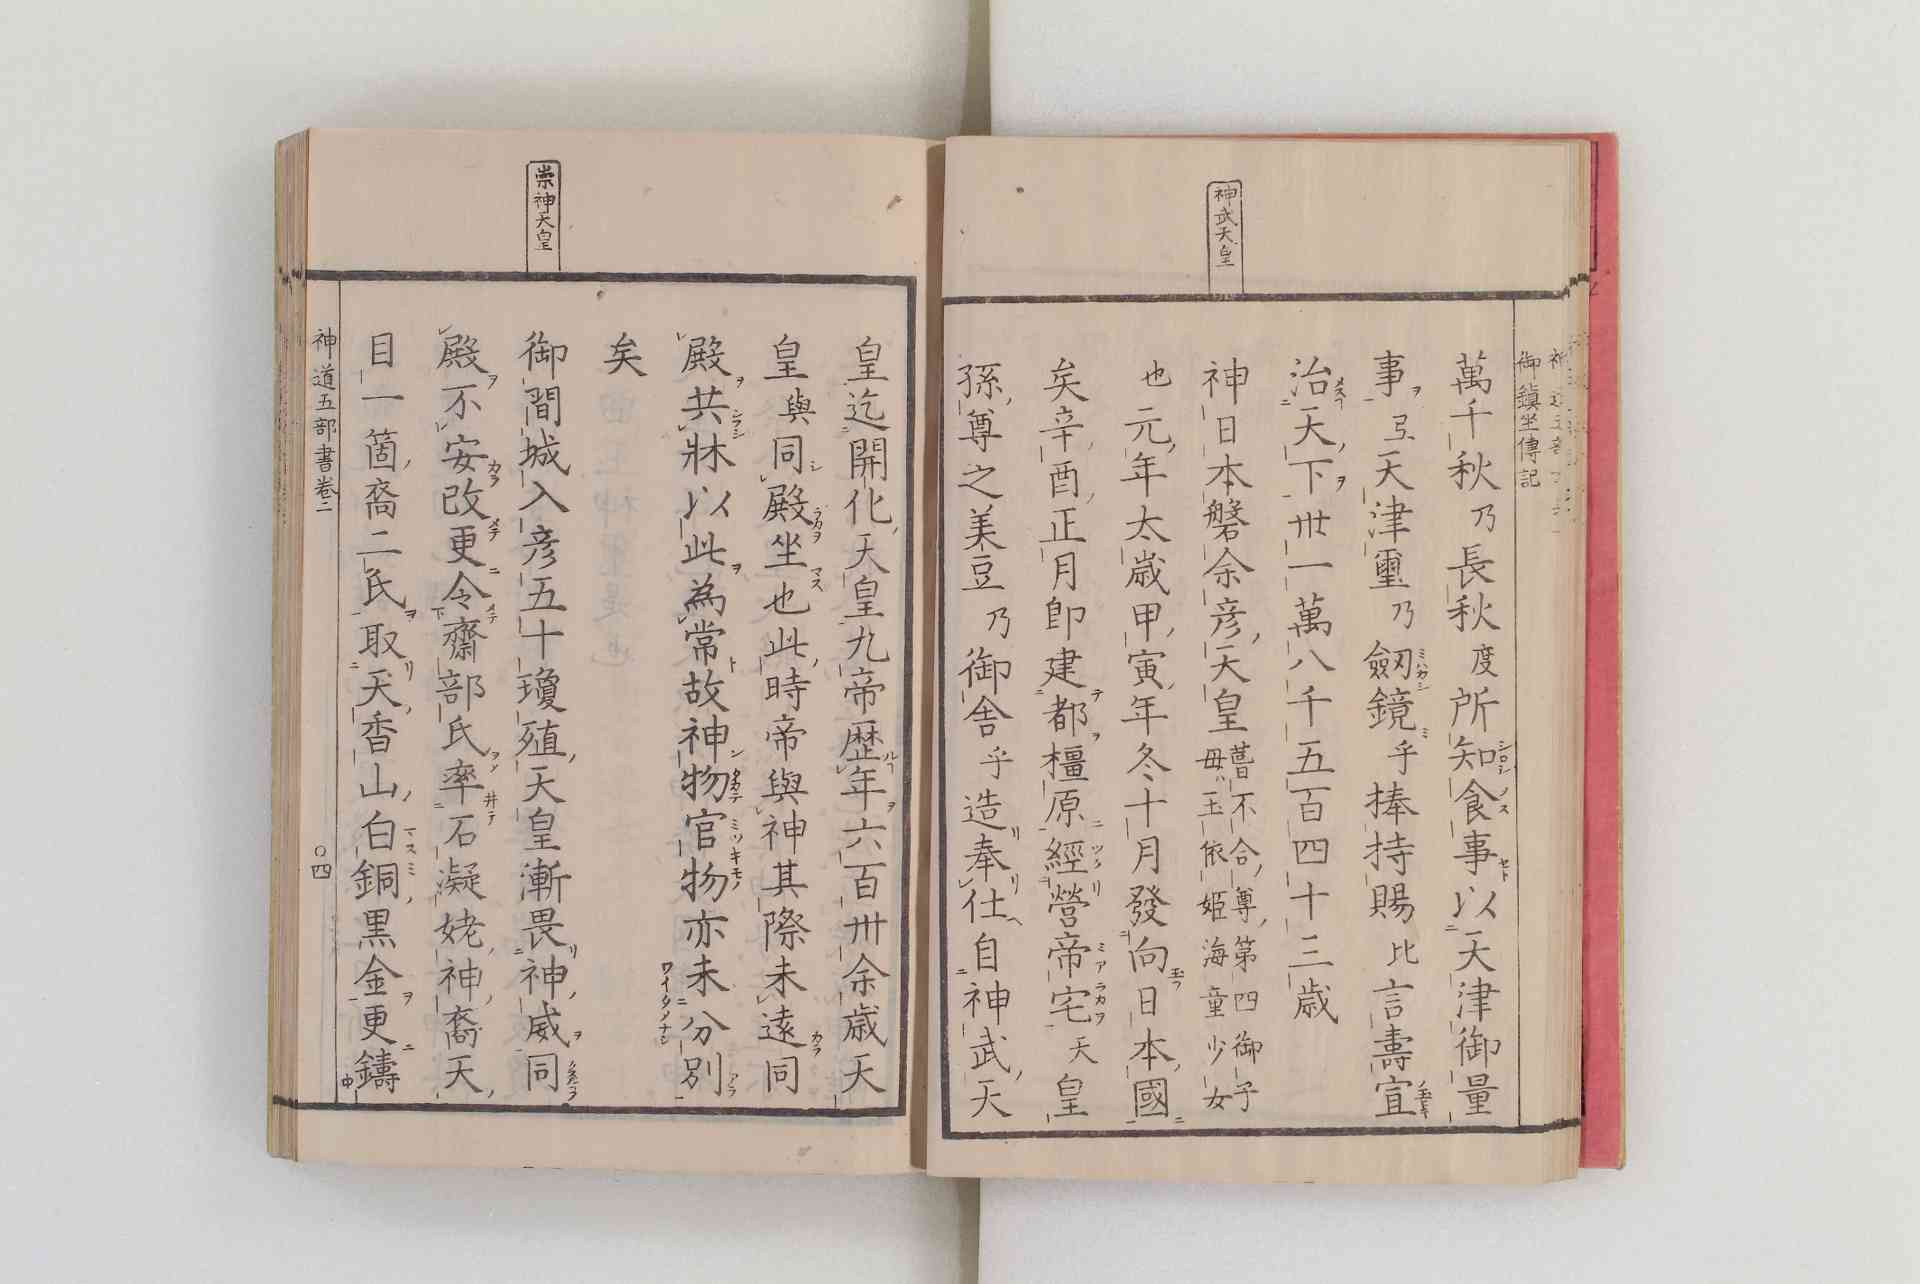 神武天皇
御鎮坐傳記
萬千秋乃長秋度所知食事以天津御量
事弖天津璽乃劔鏡乎捧持賜比言壽宣
治天下卅一萬八千五百四十三歳
神日本磐余彦天皇葺不合尊第四御子母ハ玉依姫海童少女
也元年太歳甲寅年冬十月發向日本國
矣辛酉正月即建都橿原經營帝宅天皇
孫尊之美豆乃御舎乎造奉仕自神武天
皇迄開化天皇九帝歴年六百卅余歳天
皇與同殿坐也此時帝與神其際未遠同
殿共牀以此為常故神物官物亦未分別
矣
崇神天皇
御間城入彦五十瓊殖天皇漸畏神威同
殿不安改更令齋部氏率石凝姥神裔天
目一箇裔二氏取天香山白銅黒金更鑄
神道五部書卷二
○四